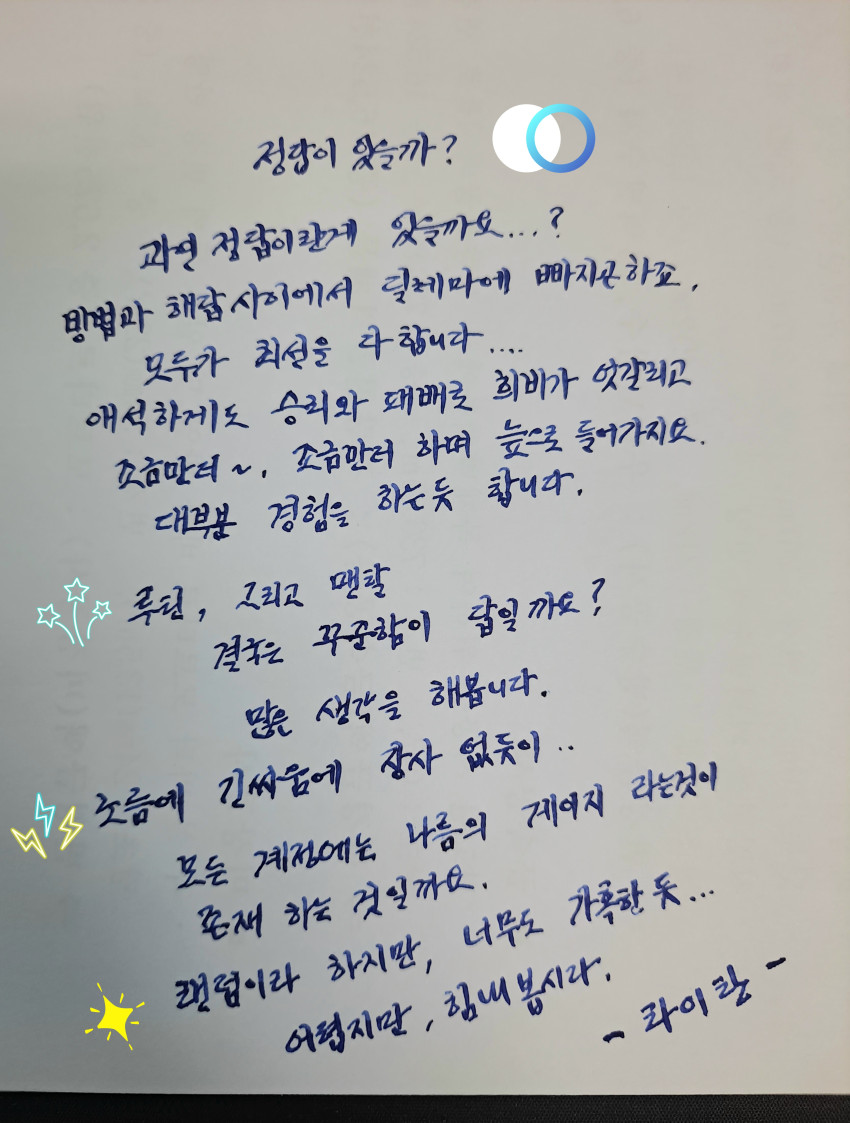 정답이 있을까?
과연 정답이란게 있을까요...?
방법과 해답 사이에서 딜레마에 빠지곤하죠.
모두가 최선을 다 합니다....
애석하게도 승리와 패배로 희비가 엇갈리고
조금만더~, 조금만더 하며 늪으로 들어가지요.
대부분 경험을 하는듯 합니다.
루틴, 그리고 맨탈
결국은 꾸준함이 답일까요?
많은 생각을 해봅니다.
노름에 긴싸움에 장사 없듯이..
모든 계정에는 나름의 게이지 라는것이
존재 하는 것일까요.
랜덤이라 하지만, 너무도 가혹한 듯...
어렵지만, 힘내 봅시다.
- 라이칸 -